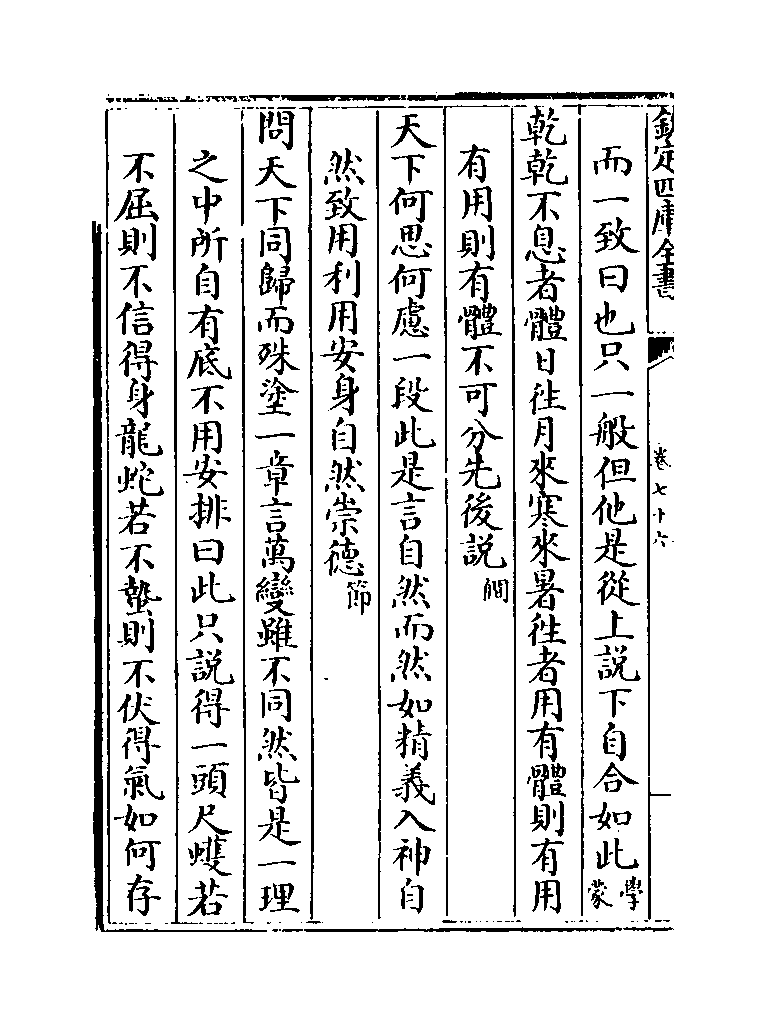 欽定四庫全書
卷七十六
而一致曰也只一般但他是從上說下自合如此學蒙
乾乾不息者體日往月來寒來暑往者用有體則有用
有用則有體不可分先後說僩
天下何思何慮一段此是言自然而然如精義入神自
然致用利用安身自然崇德節
問天下同歸而殊塗一章言萬變雖不同然皆是一理
之中所自有底不用安排曰此只說得一頭尺蠖若
不屈則不信得身龍蛇若不蟄則不伏得氣如何存